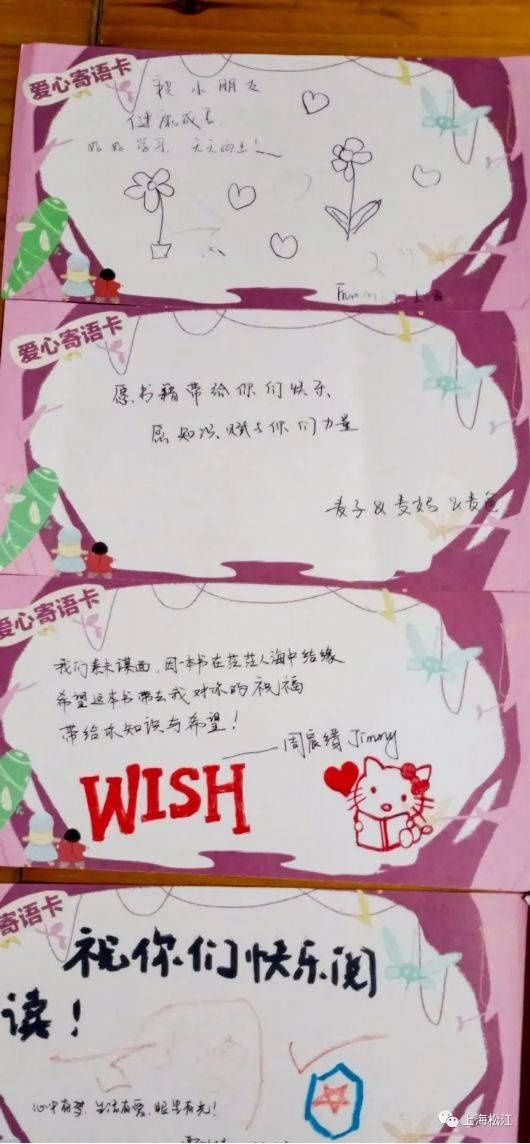 爱心寄语卡
祝小朋友
健康成长,
好好学习,天天向上!
爱心寄语卡
愿书籍带给你们快乐、
愿知识赋予你们力量
麦子&麦妈&麦爸
爱心寄语卡
我们素未谋面,因一本书在茫茫人海中结缘
希望这本书带去我对你的祝福
带给你知识与希望!
Jimmy
WISH
寄语卡
祝你们快乐阅
读!
心中有梦,生活有爱,眼里有光!
上海松江